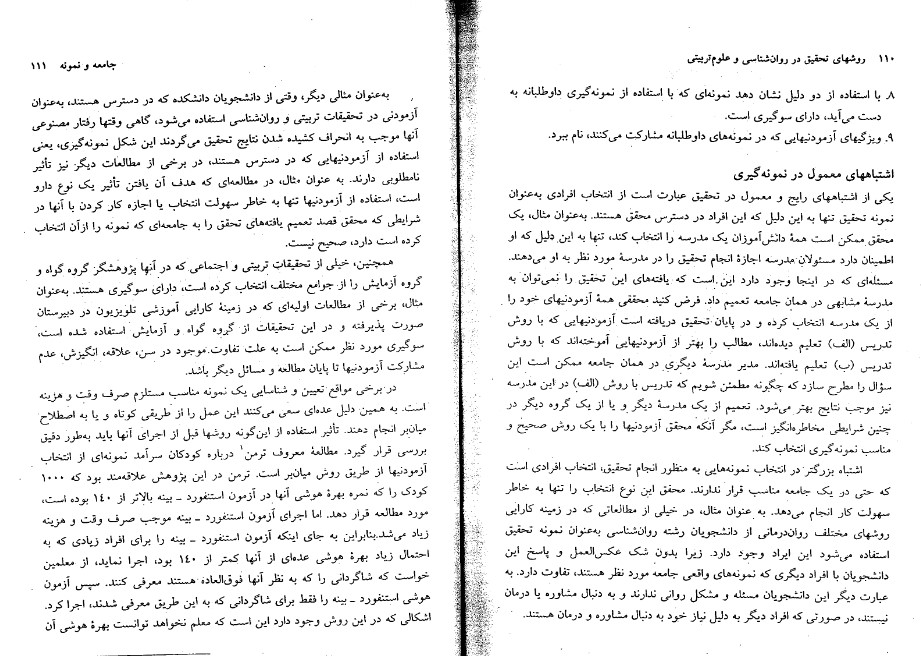 ۱۱۰ روشهای تحقیق در روان‌شناسی و علوم تربیتی
۸. با استفاده از دو دلیل نشان دهد نمونه‌ای که با استفاده از نمونه‌گیری داوطلبانه به
دست می‌آید، دارای سوگیری است.
۹. ویژگیهای آزمودنیهایی که در نمونه‌های داوطلبانه مشارکت می‌کنند، نام ببرد.
اشتباههای معمول در نمونه‌گیری
یکی از اشتباههای رایج و معمول در تحقیق عبارت است از انتخاب افرادی به‌عنوان
نمونه تحقیق تنها به این دلیل که این افراد در دسترس محقق هستند. به‌عنوان مثال، یک
محقق ممکن است همهٔ دانش‌آموزان یک مدرسه را انتخاب کند، تنها به این دلیل که او
اطمینان دارد مسئولان مدرسه اجازهٔ انجام تحقیق را در مدرسهٔ مورد نظر به او می‌دهند.
مسئله‌ای که در اینجا وجود دارد این است که یافته‌های این تحقیق را نمی‌توان به
مدرسهٔ مشابهی در همان جامعه تعمیم داد. فرض کنید محققی همهٔ آزمودنیهای خود را
از یک مدرسه انتخاب کرده و در پایان تحقیق دریافته است آزمودنیهایی که با روش
تدریس (الف) تعلیم دیده‌اند، مطالب را بهتر از آزمودنیهایی آموخته‌اند که با روش
تدریس (ب) تعلیم یافته‌اند. مدیر مدرسهٔ دیگری در همان جامعه ممکن است این
سؤال را مطرح سازد که چگونه مطمئن شویم که تدریس با روش (الف) در این مدرسه
نیز موجب نتایج بهتر می‌شود. تعمیم از یک مدرسه به مدرسهٔ دیگر و یا از یک گروه دیگر در
چنین شرایطی مخاطره‌انگیز است، مگر آنکه محقق آزمودنیها را با یک روش صحیح و
مناسب نمونه‌گیری انتخاب کند.
اشتباه بزرگتر در انتخاب نمونه‌هایی به منظور انجام تحقیق، انتخاب افرادی است
که حتی در یک جامعه مناسب قرار ندارند. محقق این نوع انتخاب را تنها به خاطر
سهولت کار انجام می‌دهد. به عنوان مثال، در خیلی از مطالعاتی که در زمینه کارایی
روشهای مختلف روان‌درمانی از دانشجویان رشته روان‌شناسی به‌عنوان نمونه تحقیق
استفاده می‌شود این ایراد وجود دارد. زیرا بدون شک عکس‌العمل و پاسخ این
دانشجویان با افراد دیگری که نمونه‌های واقعی جامعه مورد نظر هستند، تفاوت دارد. به
عبارت دیگر این دانشجویان مسئله و مشکل روانی ندارند و به دنبال مشاوره یا درمان
نیستند، در صورتی که افراد دیگر به دلیل نیاز خود به دنبال مشاوره و درمان هستند.
جامعه و نمونه ۱۱۱
به‌عنوان مثالی دیگر، وقتی از دانشجویان دانشکده که در دسترس هستند، به‌عنوان
آزمودنی در تحقیقات تربیتی و روان‌شناسی استفاده می‌شود، گاهی وقتها رفتار مصنوعی
آنها موجب به انحراف کشیده شدن نتایج تحقیق می‌گردند این شکل نمونه‌گیری، یعنی
استفاده از آزمودنیهایی که در دسترس هستند، در برخی از مطالعات دیگر نیز تأثیر
نامطلوبی دارند. به عنوان مثال، در مطالعه‌ای که هدف آن یافتن تأثیر یک نوع دارو
است، استفاده از آزمودنیها تنها به خاطر سهولت انتخاب یا اجازه کار کردن با آنها در
شرایطی که محقق قصد تعمیم یافته‌های تحقق را به جامعه‌ای که نمونه را ازآن انتخاب
کرده است دارد، صحیح نیست.
همچنین، خیلی از تحقیقات تربیتی و اجتماعی که در آنها پژوهشگر گروه گواه و
گروه آزمایش را از جوامع مختلف انتخاب کرده است، دارای سوگیری هستند. به‌عنوان
مثال، برخی از مطالعات اولیه‌ای که در زمینهٔ کارایی آموزشی تلویزیون در دبیرستان
صورت پذیرفته و در این تحقیقات از گروه گواه و آزمایش استفاده شده است،
سوگیری مورد نظر ممکن است به علت تفاوت موجود در سن، علاقه، انگیزش، عدم
مشارکت آزمودنیها تا پایان مطالعه و مسائل دیگر باشد.
در برخی مواقع تعیین و شناسایی یک نمونه مناسب مستلزم صرف وقت و هزینه
است. به همین دلیل عده‌ای سعی می‌کنند این عمل را از طریقی کوتاه و یا به اصطلاح
میان‌بر انجام دهند. تأثیر استفاده از این‌گونه روشها قبل از اجرای آنها باید به‌طور دقیق
بررسی قرار گیرد. مطالعهٔ معروف ترمن۱ درباره کودکان سرآمد نمونه‌ای از انتخاب
آزمودنیها از طریق روش میان‌بر است. ترمن در این پژوهش علاقه‌مند بود که ۱۰۰۰
کودک را که نمره بهرهٔ هوشی آنها در آزمون استنفورد ـ بینه بالاتر از ۱۴۰ بوده است،
مورد مطالعه قرار دهد. اما اجرای آزمون استنفورد ـ بینه موجب صرف وقت و هزینه
زیاد می‌شد.بنابراین به جای اینکه آزمون استنفورد ـ بینه را برای افراد زیادی که به
احتمال زیاد بهرهٔ هوشی عده‌ای از آنها کمتر از ۱۴۰ بود، اجرا نماید، از معلمین
خواست که شاگردانی را که به نظر آنها فوق‌العاده هستند معرفی کنند. سپس آزمون
هوشی استنفورد ـ بینه را فقط برای شاگردانی که به این طریق معرفی شدند، اجرا کرد.
اشکالی که در این روش وجود دارد این است که معلم نخواهد توانست بهرهٔ هوشی آن